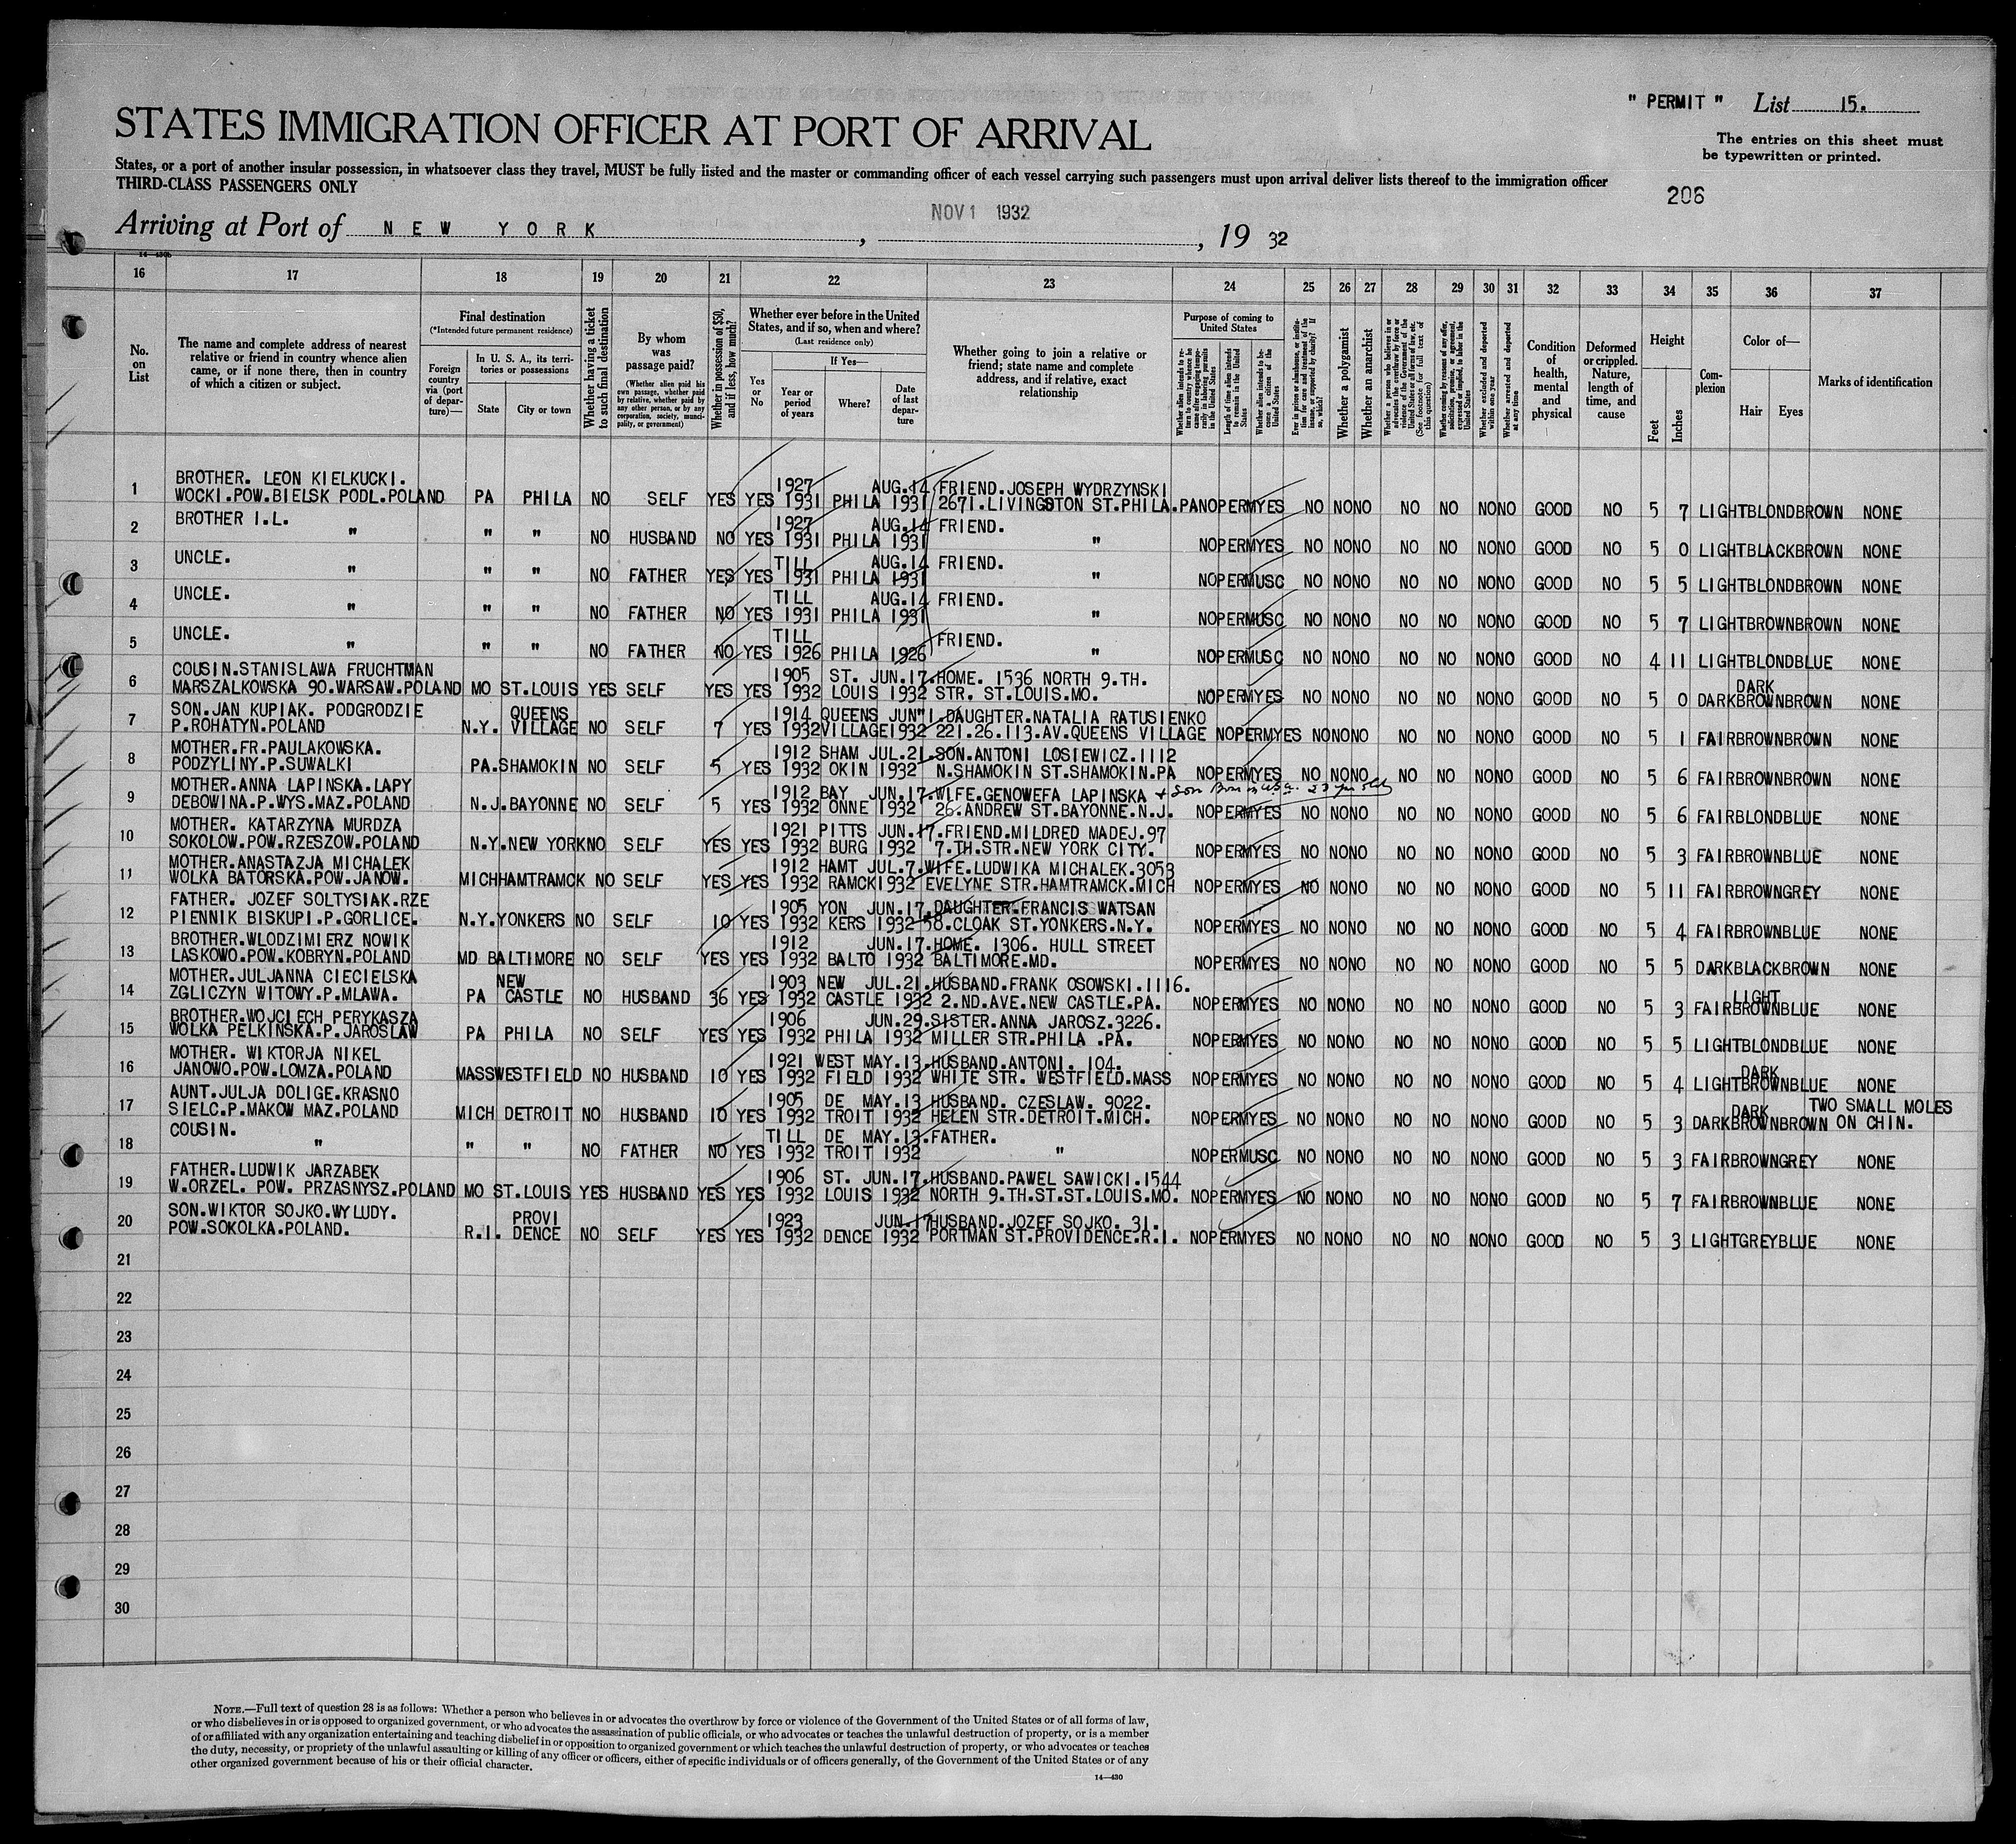 " PERMIT " List 15.
STATES IMMIGRATION OFFICER AT PORT OF ARRIVAL
The entries on this sheet must
be typewritten or printed.
States, or a port of another insular possession, in whatsoever class they travel, MUST be fully listed and the master or commanding officer of each vessel carrying such passengers must upon arrival deliver lists thereof to the immigration officer
THIRD-CLASS PASSENGERS ONLY
206
NOV 1 1932
Arriving at Port of NEW YORK , , 19 32
14-430b
16 17 18 19 20 21 22 23 24 25 26 27 28 29 30 31 32 33 34 35 36 37
No. on List
The name and complete address of nearest relative or friend in country whence alien came, or if none there, then in country of which a citizen or subject.
Final destination
(*Intended future permanent residence)
Foreign country via (port of departure)—
In U. S. A., its territories or possessions
State City or town
Whether having a ticket to such final destination
By whom was passage paid?
(Whether alien paid his own passage, whether paid by relative, whether paid by any other person, or by any corporation, society, municipality, or government)
Whether in possession of $50, and if less, how much?
Whether ever before in the United States, and if so, when and where?
(Last residence only)
Yes or No
If Yes—
Year or period of years
Where?
Date of last departure
Whether going to join a relative or friend; state name and complete address, and if relative, exact relationship
Purpose of coming to United States
Whether alien intends to return to country whence he came after engaging temporarily in laboring pursuits in the United States
Length of time alien intends to remain in the United States
Whether alien intends to become a citizen of the United States
Ever in prison or almshouse, or institution for care and treatment of the insane, or supported by charity? If so, which?
Whether a polygamist
Whether an anarchist
Whether a person who believes in or advocates the overthrow by force or violence of the Government of the United States or all forms of law, etc. (See footnote for full text of this question)
Whether coming by reason of any offer, solicitation, promise, or agreement, expressed or implied, to labor in the United States
Whether excluded and deported within one year
Whether arrested and deported at any time
Condition of health, mental and physical
Deformed or crippled. Nature, length of time, and cause
Height
Feet Inches
Complexion
Color of—
Hair Eyes
Marks of identification
1 BROTHER. LEON KIELKUCKI. 1927 AUG.14 FRIEND.JOSEPH WYDRZYNSKI
WOCKI.POW.BIELSK PODL.POLAND PA PHILA NO SELF YES YES 1931 PHILA 1931 2671.LIVINGSTON ST.PHILA.PA NO PERM YES NO NO NO NO NO NO NO GOOD NO 5 7 LIGHT BLOND BROWN NONE
2 BROTHER I.L. 1927 AUG.14 FRIEND.
" " " NO HUSBAND NO YES 1931 PHILA 1931 " NO PERM YES NO NO NO NO NO NO NO GOOD NO 5 0 LIGHT BLACK BROWN NONE
3 UNCLE. TILL AUG.14 FRIEND.
" " " NO FATHER YES YES 1931 PHILA 1931 " NO PERM USC NO NO NO NO NO NO NO GOOD NO 5 5 LIGHT BLOND BROWN NONE
4 UNCLE. TILL AUG.14 FRIEND.
" " " NO FATHER NO YES 1931 PHILA 1931 " NO PERM USC NO NO NO NO NO NO NO GOOD NO 5 7 LIGHT BROWN BROWN NONE
5 UNCLE. TILL FRIEND.
" " " NO FATHER NO YES 1926 PHILA 1926 " NO PERM USC NO NO NO NO NO NO NO GOOD NO 4 11 LIGHT BLOND BLUE NONE
6 COUSIN.STANISLAWA FRUCHTMAN 1905 ST. JUN.17. HOME. 1536 NORTH 9.TH. DARK
MARSZALKOWSKA 90.WARSAW.POLAND MO ST.LOUIS YES SELF YES YES 1932 LOUIS 1932 STR. ST.LOUIS.MO. NO PERM YES NO NO NO NO NO NO NO GOOD NO 5 0 DARK BROWN BROWN NONE
7 SON.JAN KUPIAK. PODGRODZIE QUEENS 1914 QUEENS JUN"1. DAUGHTER.NATALIA RATUSIENKO
P.ROHATYN.POLAND N.Y. VILLAGE NO SELF 7 YES 1932 VILLAGE 1932 221.26.113.AV.QUEENS VILLAGE NO PERM YES NO NO NO NO NO NO NO GOOD NO 5 1 FAIR BROWN BROWN NONE
8 MOTHER.FR.PAULAKOWSKA. 1912 SHAM JUL.21. SON.ANTONI LOSIEWICZ.1112
PODZYLINY.P.SUWALKI PA. SHAMOKIN NO SELF 5 YES 1932 OKIN 1932 N.SHAMOKIN ST.SHAMOKIN.PA NO PERM YES NO NO NO NO NO NO NO GOOD NO 5 6 FAIR BROWN BROWN NONE
9 MOTHER.ANNA LAPINSKA.LAPY 1912 BAY JUN.17. WIFE.GENOWEFA LAPINSKA + Son Born in USA. 23 yrs old
DEBOWINA.P.WYS.MAZ.POLAND N.J. BAYONNE NO SELF 5 YES 1932 ONNE 1932 26.ANDREW ST.BAYONNE.N.J. NO PERM YES NO NO NO NO NO NO NO GOOD NO 5 6 FAIR BLOND BLUE NONE
10 MOTHER. KATARZYNA MURDZA 1921 PITTS JUN.17. FRIEND.MILDRED MADEJ.97
SOKOLOW.POW.RZESZOW.POLAND N.Y. NEW YORK NO SELF YES YES 1932 BURG 1932 7.TH.STR.NEW YORK CITY. NO PERM YES NO NO NO NO NO NO NO GOOD NO 5 3 FAIR BROWN BLUE NONE
11 MOTHER.ANASTAZJA MICHALEK 1912 HAMT JUL.7. WIFE.LUDWIKA MICHALEK.3053
WOLKA BATORSKA.POW.JANOW. MICH HAMTRAMCK NO SELF YES YES 1932 RAMCK 1932 EVELYNE STR.HAMTRAMCK.MICH NO PERM YES NO NO NO NO NO NO NO GOOD NO 5 11 FAIR BROWN GREY NONE
12 FATHER. JOZEF SOLTYSIAK.RZE 1905 YON JUN.17. DAUGHTER.FRANCIS WATSAN
PIENNIK BISKUPI.P.GORLICE. N.Y. YONKERS NO SELF 10 YES 1932 KERS 1932 58.CLOAK ST.YONKERS.N.Y. NO PERM YES NO NO NO NO NO NO NO GOOD NO 5 4 FAIR BROWN BLUE NONE
13 BROTHER.WLODZIMIERZ NOWIK 1912 JUN.17. HOME. 1306. HULL STREET
LASKOWO.POW.KOBRYN.POLAND MD BALTIMORE NO SELF YES YES 1932 BALTO 1932 BALTIMORE.MD. NO PERM YES NO NO NO NO NO NO NO GOOD NO 5 5 DARK BLACK BROWN NONE
14 MOTHER.JULJANNA CIECIELSKA NEW 1903 NEW JUL.21. HUSBAND.FRANK OSOWSKI.1116. LIGHT
ZGLICZYN WITOWY.P.MLAWA. PA CASTLE NO HUSBAND 36 YES 1932 CASTLE 1932 2.ND.AVE.NEW CASTLE.PA. NO PERM YES NO NO NO NO NO NO NO GOOD NO 5 3 FAIR BROWN BLUE NONE
15 BROTHER.WOJCIECH PERYKASZA 1906 JUN.29. SISTER.ANNA JAROSZ.3226.
WOLKA PELKINSKA.P.JAROSLAW PA PHILA NO SELF YES YES 1932 PHILA 1932 MILLER STR.PHILA .PA. NO PERM YES NO NO NO NO NO NO NO GOOD NO 5 5 LIGHT BLOND BLUE NONE
16 MOTHER. WIKTORJA NIKEL 1921 WEST MAY.13. HUSBAND.ANTONI. 104. DARK
JANOWO.POW.LOMZA.POLAND MASS WESTFIELD NO HUSBAND 10 YES 1932 FIELD 1932 WHITE STR. WESTFIELD.MASS NO PERM YES NO NO NO NO NO NO NO GOOD NO 5 4 LIGHT BROWN BLUE NONE
17 AUNT.JULJA DOLIGE.KRASNO 1905 DE MAY.13 HUSBAND. CZESLAW. 9022. DARK TWO SMALL MOLES
SIELC.P.MAKOW MAZ.POLAND MICH DETROIT NO HUSBAND 10 YES 1932 TROIT 1932 HELEN STR.DETROIT.MICH. NO PERM YES NO NO NO NO NO NO NO GOOD NO 5 3 DARK BROWN BROWN ON CHIN.
18 COUSIN. TILL DE MAY.13. FATHER.
" " " NO FATHER NO YES 1932 TROIT 1932 " NO PERM USC NO NO NO NO NO NO NO GOOD NO 5 3 FAIR BROWN GREY NONE
19 FATHER.LUDWIK JARZABEK 1906 ST. JUN.17. HUSBAND.PAWEL SAWICKI.1544
W.ORZEL. POW. PRZASNYSZ.POLAND MO ST.LOUIS YES HUSBAND YES YES 1932 LOUIS 1932 NORTH 9.TH.ST.ST.LOUIS.MO. NO PERM YES NO NO NO NO NO NO NO GOOD NO 5 7 FAIR BROWN BLUE NONE
20 SON.WIKTOR SOJKO.WYLUDY. PROVI 1923 JUN.17 HUSBAND.JOZEF SOJKO. 31.
POW.SOKOLKA.POLAND. R.I. DENCE NO SELF YES YES 1932 DENCE 1932 PORTMAN ST.PROVIDENCE.R.I. NO PERM YES NO NO NO NO NO NO NO GOOD NO 5 3 LIGHT GREY BLUE NONE
21
22
23
24
25
26
27
28
29
30
NOTE.—Full text of question 28 is as follows: Whether a person who believes in or advocates the overthrow by force or violence of the Government of the United States or of all forms of law,
or who disbelieves in or is opposed to organized government, or who advocates the assassination of public officials, or who advocates or teaches the unlawful destruction of property, or is a member
of or affiliated with any organization entertaining and teaching disbelief in or opposition to organized government or which teaches the unlawful destruction of property, or who advocates or teaches
the duty, necessity, or propriety of the unlawful assaulting or killing of any officer or officers, either of specific individuals or of officers generally, of the Government of the United States or of any
other organized government because of his or their official character.
14—430